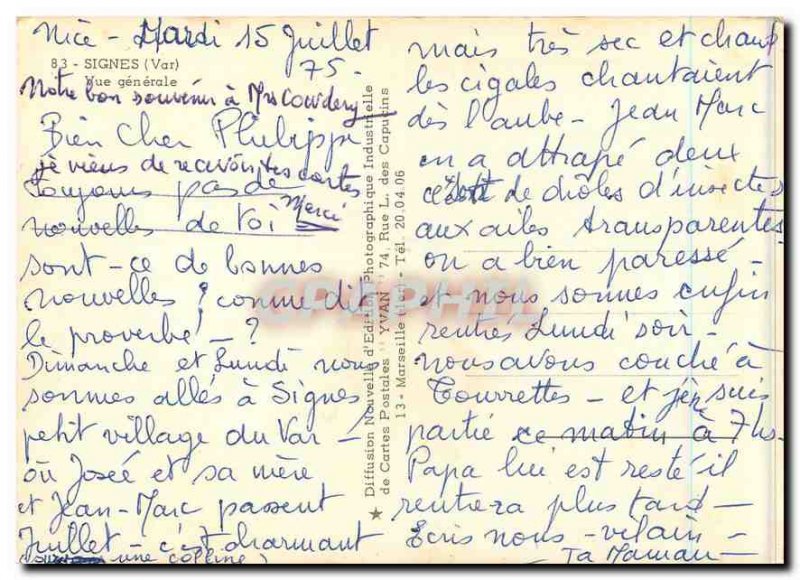 Nice - Mardi 15 Juillet
75.
83 - SIGNES (Var)
Vue générale
Notre bon souvenir à Mrs Cowdery
Bien Cher Philippe
je viens de recevoir tes cartes
Merci
Toujours pas de
nouvelles de Toi
sont-ce de bonnes
nouvelles ? comme dit
le proverbe - ?
Dimanche et Lundi nous
sommes allés à Signes
petit village du Var -
où Josée et sa mère
et Jean-Marc passent
Juillet - c'est charmant
une colline
Diffusion Nouvelle d'Edition Photographique Industrielle
de Cartes Postales "YVAN" 74, Rue L. des Capucins
13 - Marseille (1er) - Tél. 20.04.06
mais très sec et chaud
les cigales chantaient
dès l'aube - Jean Marc
en a attrapé deux
de drôles d'insectes
aux ailes transparentes
on a bien paressé -
et nous sommes enfin
rentrés Lundi soir -
nous avons couché à
Tourrettes - et j'en suis
partie ce matin à 7 hs.
Papa lui est resté il
rentrera plus tard -
Ecris nous - vilain -
Ta Maman -